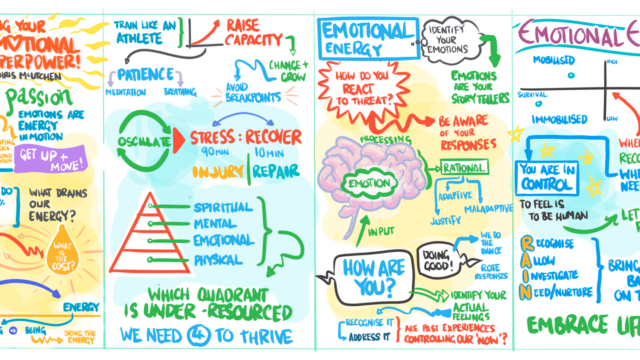 YOUR
EMOTIONAL
SUPERPOWER!
CHRIS McLITCHEN
passion
EMOTIONS ARE
ENERGY
IN MOTION
GET UP +
MOVE!
WHAT DRAINS
OUR
ENERGY?
WHAT
IS THE
COST?
ENERGY
BEING
BRING THE
ENERGY
TRAIN LIKE AN
ATHLETE
RAISE
CAPACITY
PATIENCE
MEDITATION
BREATHING
CHANGE +
GROW
AVOID
BREAKPOINTS
OSCILLATE
STRESS : RECOVER
90 MIN
10 MIN
INJURY
REPAIR
SPIRITUAL
MENTAL
EMOTIONAL
PHYSICAL
WHICH QUADRANT
IS UNDER-RESOURCED
WE NEED 4 TO THRIVE
EMOTIONAL
ENERGY
IDENTIFY
YOUR
EMOTIONS
HOW DO YOU
REACT
TO THREAT?
EMOTIONS
ARE YOUR
STORYTELLERS
BE AWARE
OF YOUR
RESPONSES
PROCESSING
EMOTION
RATIONAL
ADAPTIVE
MALADAPTIVE
JUSTIFY
INPUT
HOW ARE
YOU?
DOING
GOOD!
WE DO
THE
DANCE
ROTE
RESPONSES
IDENTIFY YOUR
ACTUAL
FEELINGS
RECOGNISE IT
ADDRESS IT
ARE PAST EXPERIENCES
CONTROLLING OUR 'NOW'?
EMOTIONAL E
MOBILISED
HIGH
SURVIVAL
IMMOBILISED
LOW
YOU ARE IN
CONTROL
TO FEEL IS
TO BE HUMAN
RECOGNISE
ALLOW
INVESTIGATE
NEED/NURTURE
EMBRACE LIF